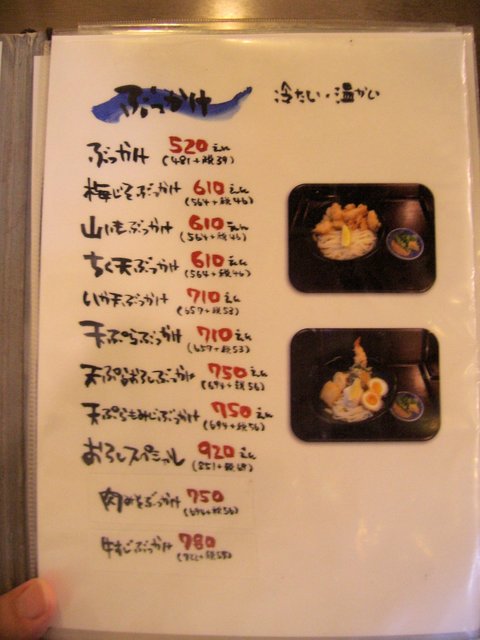 ぶっかけ 冷たい・温かい
ぶっかけ 520えん
(481+税39)
梅じそぶっかけ 610えん
(564+税46)
山いもぶっかけ 610えん
(564+税46)
ちく天ぶっかけ 610えん
(564+税46)
いか天ぶっかけ 710えん
(657+税53)
天ぷらぶっかけ 710えん
(657+税53)
天ぷらおろしぶっかけ 750えん
(694+税56)
天ぷらもみじぶっかけ 750えん
(694+税56)
おろしスペシャル 920えん
(851+税69)
肉みそぶっかけ 750
(694+税56)
牛すじぶっかけ 780
(722+税58)